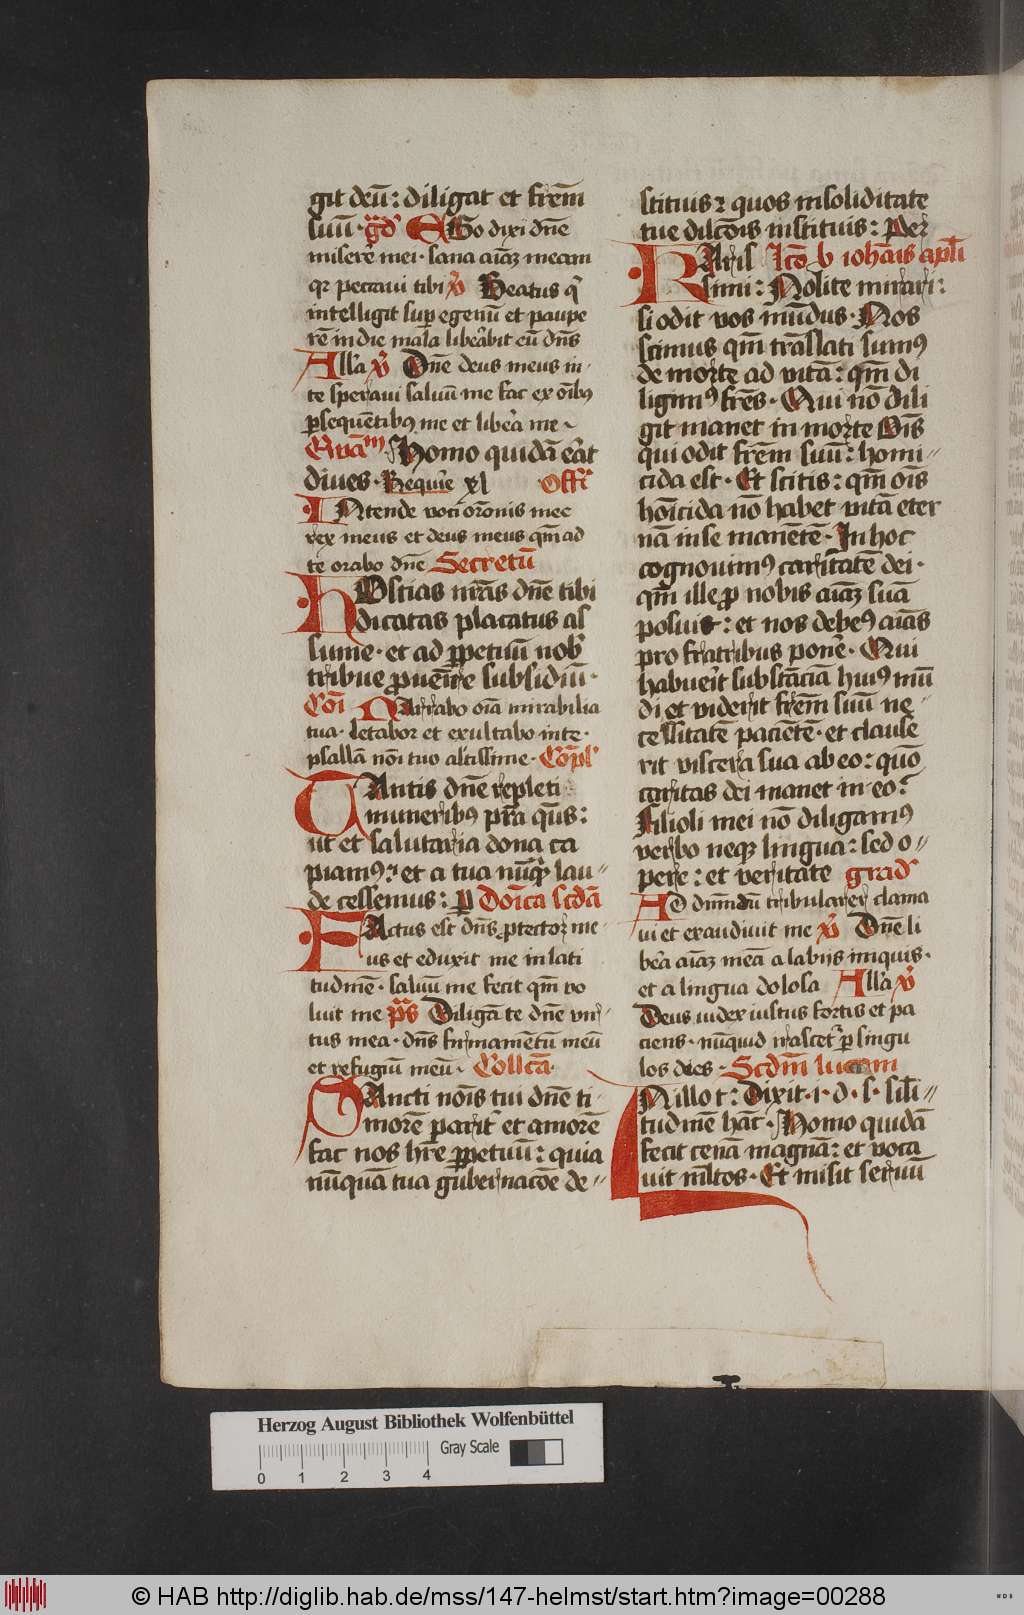 git deū: diligat et frēm
suū · gͣdͬ EGo dixi dn̄e
miserē mei · sana aīaꝫ meam
qꝛ peccaui tibi v̓ Beatus q̄
intelligit suꝑ egenū et paupe
rē in die mala liberabit eū dn̄s
All'a v̓ Dn̄e deus meus in
te speraui saluū me fac ex oībꝰ
ꝑsequētibꝰ me et libera me ·
Ewāᵐ Homo quidā erat
diues · Require xl Offͬ
INtende voci orōnis mee
rex meus et deus meus qm̄ ad
te orabo dn̄e Secretū
HOstias nrās dn̄e tibi
dicatas placatus as
sume · et ad ꝑpetuū nob'
tribue ꝓuenire subsidiū ·
Cōi Narrabo oīa mirabilia
tua · letabor et exultabo in te ·
psallā nōi tuo altissime · Cōpl'
TAntis dn̄e repleti
muneribꝰ pr̄a qs̄:
ut et salutaria dona ca
piamꝰ: et a tua nūqͣ lau//
de cessemus: ꝑ Doīca scdā
FActus est dn̄s ꝓtector me
us et eduxit me in lati
tudinē · saluū me fecit qm̄ vo
luit me p̄s Diligā te dn̄e vir
tus mea · dn̄s firmamētū meū
et refugiū meū · Collcā ·
SAncti nōis tui dn̄e ti
morē pariter et amorē
fac nos hr̄e ꝑpetuū: quia
nūquā tua gubernacōe de//
stituis ꝛ quos in soliditate
tue dilcōis instituis: Per
KAris Lcō b iohāis apl'i
simi: Nolite mirari:
si odit vos mūdus · Nos
scimus qm̄ trāslati sumꝰ
de morte ad vitā: qm̄ di
ligimꝰ frēs · Qui nō dili
git manet in morte Oīs
qui odit frēm suū: homi//
cida est · Et scitis: qm̄ oīs
hōicida nō habet vitā eter
nā in se manētē · In hoc
cognouimꝰ caritatē dei ·
qm̄ ille ꝓ nobis aīaꝫ suā
posuit: et nos debeꝰ aīas
pro fratribus ponē · Qui
habuerit substāciā huiꝰ mū
di et viderit frēm suū ne
cessitatē pacientē · et clause
rit viscera sua ab eo: quō
caritas dei manet in eo?
Filioli mei nō diligamꝰ
verbo neqꝫ lingua: sed o//
pere: et veritate gradͬ
AD dnm̄ dū tribularer clama
ui et exaudiuit me v̓ Dn̄e li
bera aīaꝫ meā a labijs iniquis ·
et a lingua dolosa All'a v̓
Deus iudex iustus fortis et pa
ciens · nūquid irascet̓ ꝑ singu
los dies · Scdm̄ lucam
IN illo t: Dixit · i · d · s · sil'i//
tudinē hāc · Homo quidā
fecit cenā magnā: et voca
uit ml'tos · Et misit seruū
Herzog August Bibliothek Wolfenbüttel
Gray Scale
0 1 2 3 4
© HAB http://diglib.hab.de/mss/147-helmst/start.htm?image=00288